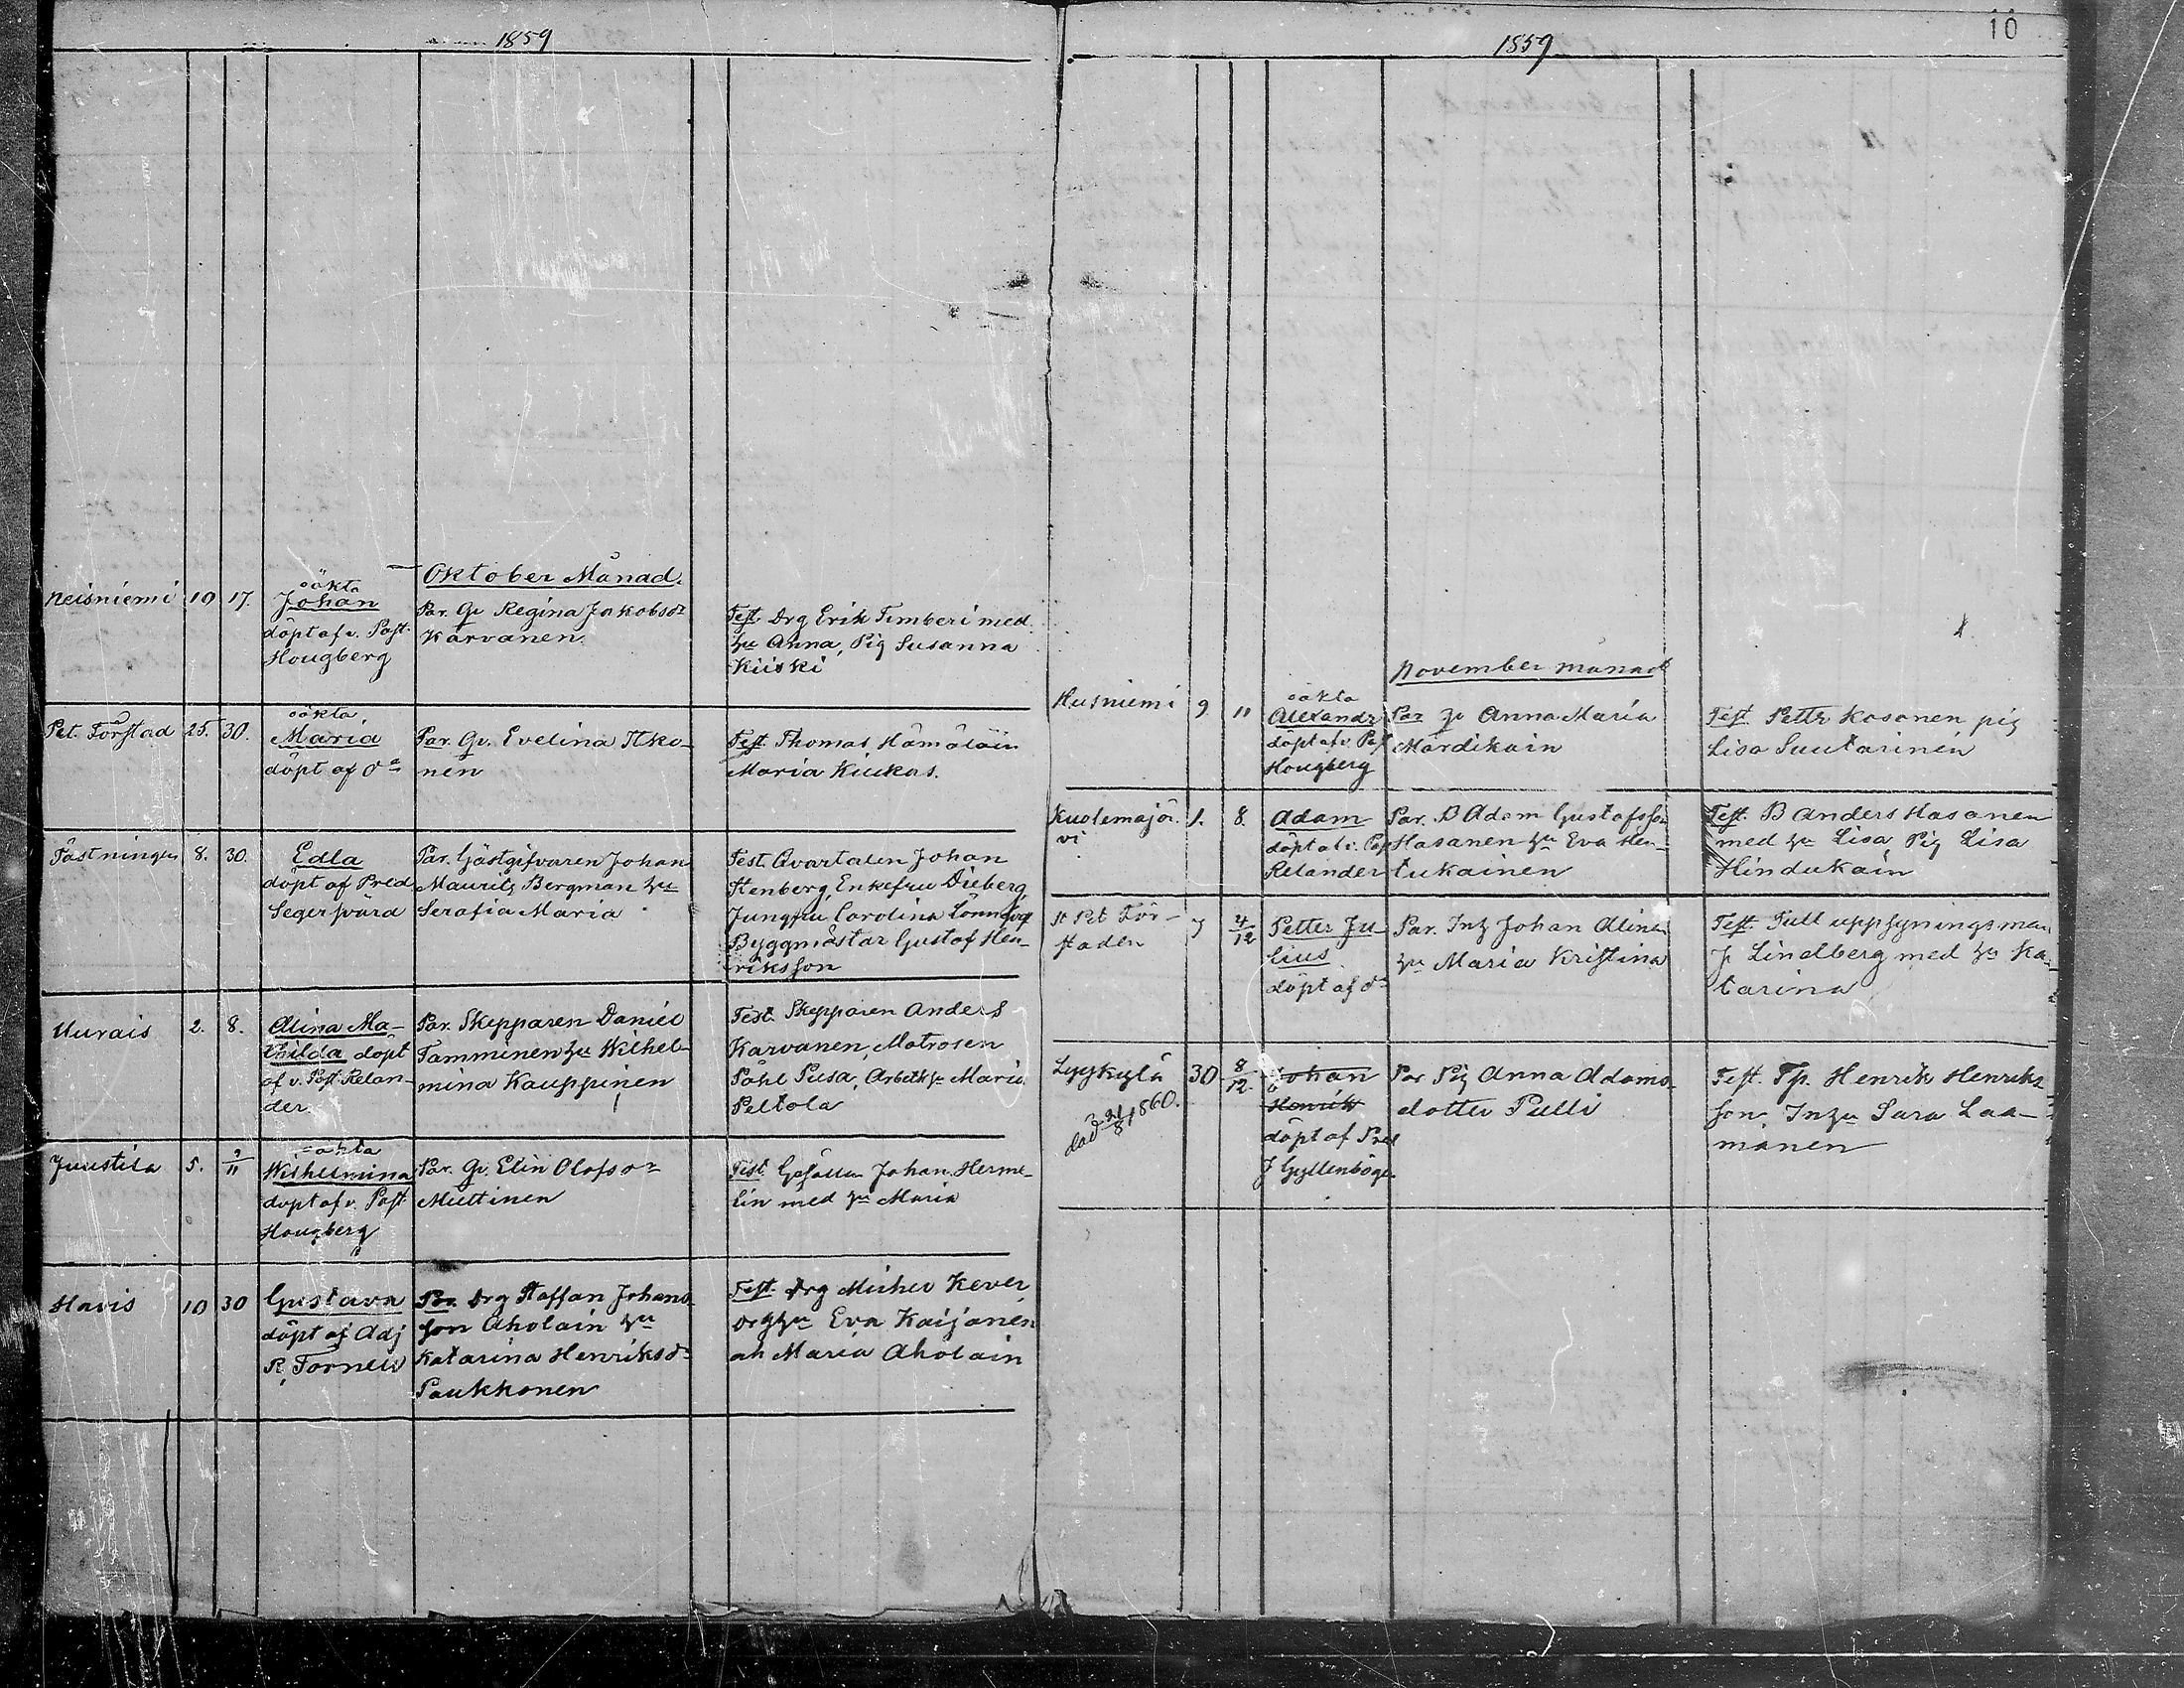 1859
Oktober Månad.
Neisniemi 10 17. oäkta
Johan
döpt af v. Past.
Hougberg
Par. Qv Regina Jakobsdr
Karvanen
Test. Drg Erik Timberi med
hu Anna, Pig Susanna
Kiiski
Pet. Förstad 25. 30. oäkta
Maria
döpt af do
Par. Qv. Evelina Itko-
nen
Test. Thomas Hämäläin
Maria Kiukas.
Fästningen 8. 30. Edla
döpt af Pred
Segersvärd
Par. Gästgifvaren Johan
Maurits Bergman hu
Serafia Maria
Test. Johan
Stenberg, Enkefru Dieberg,
Jungfru Carolina Lönnqvist
Byggmästar Gustaf Hen-
riksson
Uurais 2. 8. Alina Ma-
thilda döpt
af v. Past Relan-
der.
Par. Skepparen Daniel
Tamminen hu Wilhel-
mina Kauppinen
Test. Skepparen Anders
Karvanen, Matrosen
Påhl Pusa, Arbetk hu Maria
Peltola
Juustila 5. 9/11 oäkta
Wilhelmina
döpt af v. Past
Hougberg
Par. Qv. Elin Olofsdr
Muttinen
Test. Gesällen Johan Herme-
lin med hu Maria
Havis 10 30 Gustava
döpt af Adj
R. Fornell
Par. Drg Staffan Johans-
son Aholain hu
Katarina Henriksdr
Paukkonen
Test. Drg Michel Kever,
Drghu Eva Kaijanen
ah Maria Aholain
10
1859
November månad
Husniemi 9. 11 oäkta
Alexandr
döpt af v. Past
Hougberg
Par Qv Anna Maria
Mardikain
Test. Petter Kosonen pig
Lisa Suutarinen
Kuolemajär-
vi
1. 8. Adam
döpt af v. Past
Relander
Par. B Adam Gustafsson
Hasanen hu Eva Hen-
tukainen
Test. B Anders Hasanen
med hu Lisa, Pig Lisa
Hindukain
St Pet För-
staden
7 4/12 Petter Ju-
lius
döpt af do
Par. Inh Johan Alinen
hu Maria Kristina
Test. Tulluppsyningsman
J. Lindberg med hu Ka-
tarina
Lyykylä
död 1860.
30 8/12. Johan
Henrik
döpt af Pred
J Gyllenböge
Par Pig Anna Adams-
dotter Pulli
Test. Tp. Henrik Henriks-
son, Inhu Sara Laa-
manen